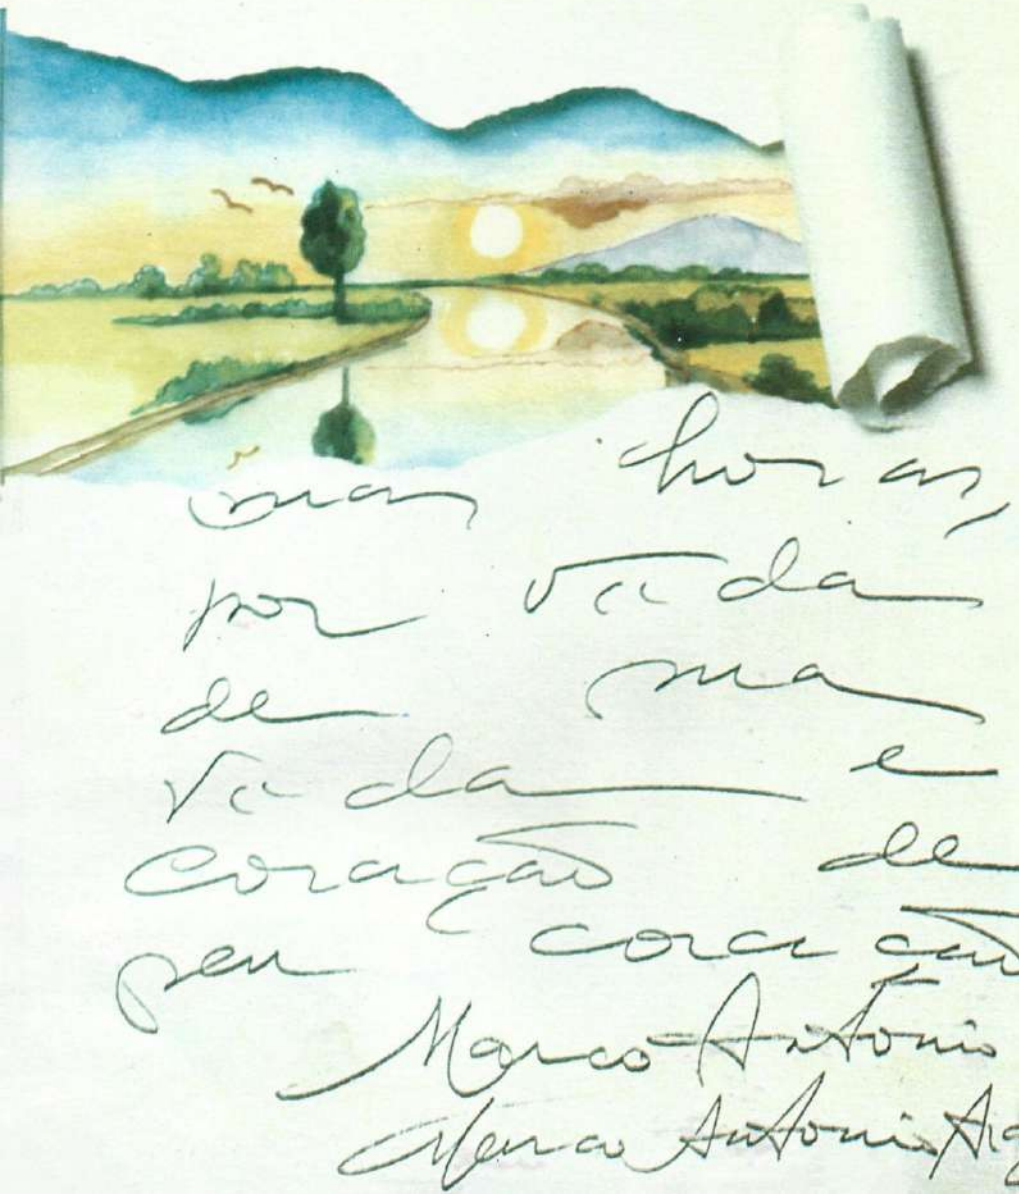 suas horas,
por vida
de sua
vida e
coração de
seu coração
Marco Antonio
Marco Antonio